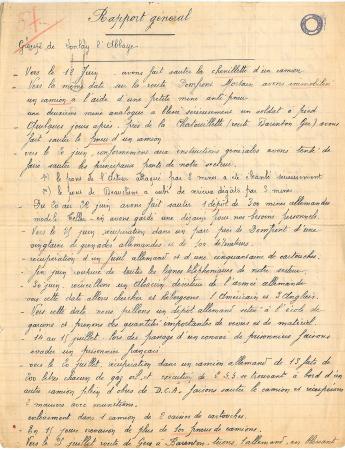 Rapport général
Groupe de Lonlay l'Abbaye
- Vers le 12 Juin avons fait sauter la chenillette d'un camion
- Vers la même date sur la route Domfront Mortain avons immobilisé
un camion à l'aide d'une petite mine anti-pneu
une deuxième mine analogue a blessé sérieusement un soldat à pied
- Quelques jours après, près de la (route Barenton Ger) avons
fait sauter le pneu d'un camion
- vers le 20 juin, conformément aux instructions générales avons tenté de
faire sauter les principaux ponts de notre secteur.
1°) le pont de attaqué par 2 mines a été sérieusement
2°) le pont de a subi de sérieux dégâts par 3 mines
- Du 20 au 28 juin avons fait sauter 1 dépôt de 300 mines allemandes
modèle Teller - en avons gardé une dizaine pour nos besoins personnels.
- Vers le 25 juin, récupération dans un parc près de Domfront d'une
vingtaine de grenades allemandes et de 500 détonateurs.
- récupération d'un fusil allemand et d'une cinquantaine de cartouches.
- fin juin coupure de toutes les lignes téléphoniques de notre secteur.
- 30 juin, recueillons un Alsacien déserteur de l'armée allemande
vers cette date allons chercher et hébergeons 1 Américain et 3 Anglais.
- Vers cette date nous pillons un dépôt allemand situé à l'école de
garçons et prenons des quantités importantes de vivres et de matériel.
- 14 au 15 juillet. lors du passage d'un convoi de prisonniers faisons
évader un prisonnier français
- vers le 20 juillet, récupération dans un camion allemand de 13 fûts de
200 litres chacun de gas oil, et se trouvant à bord d'un
autre camion plein d'obus de D.C.A. faisons sauter le camion et récupérons
2 mausers avec munitions.
enlèvement dans 1 camion de 2 caisses de cartouches.
- En 15 jours crevaison de plus de 100 pneus de camions.
- Vers le 25 juillet route de Ger à Barenton, tirons 1 allemand, en blessant